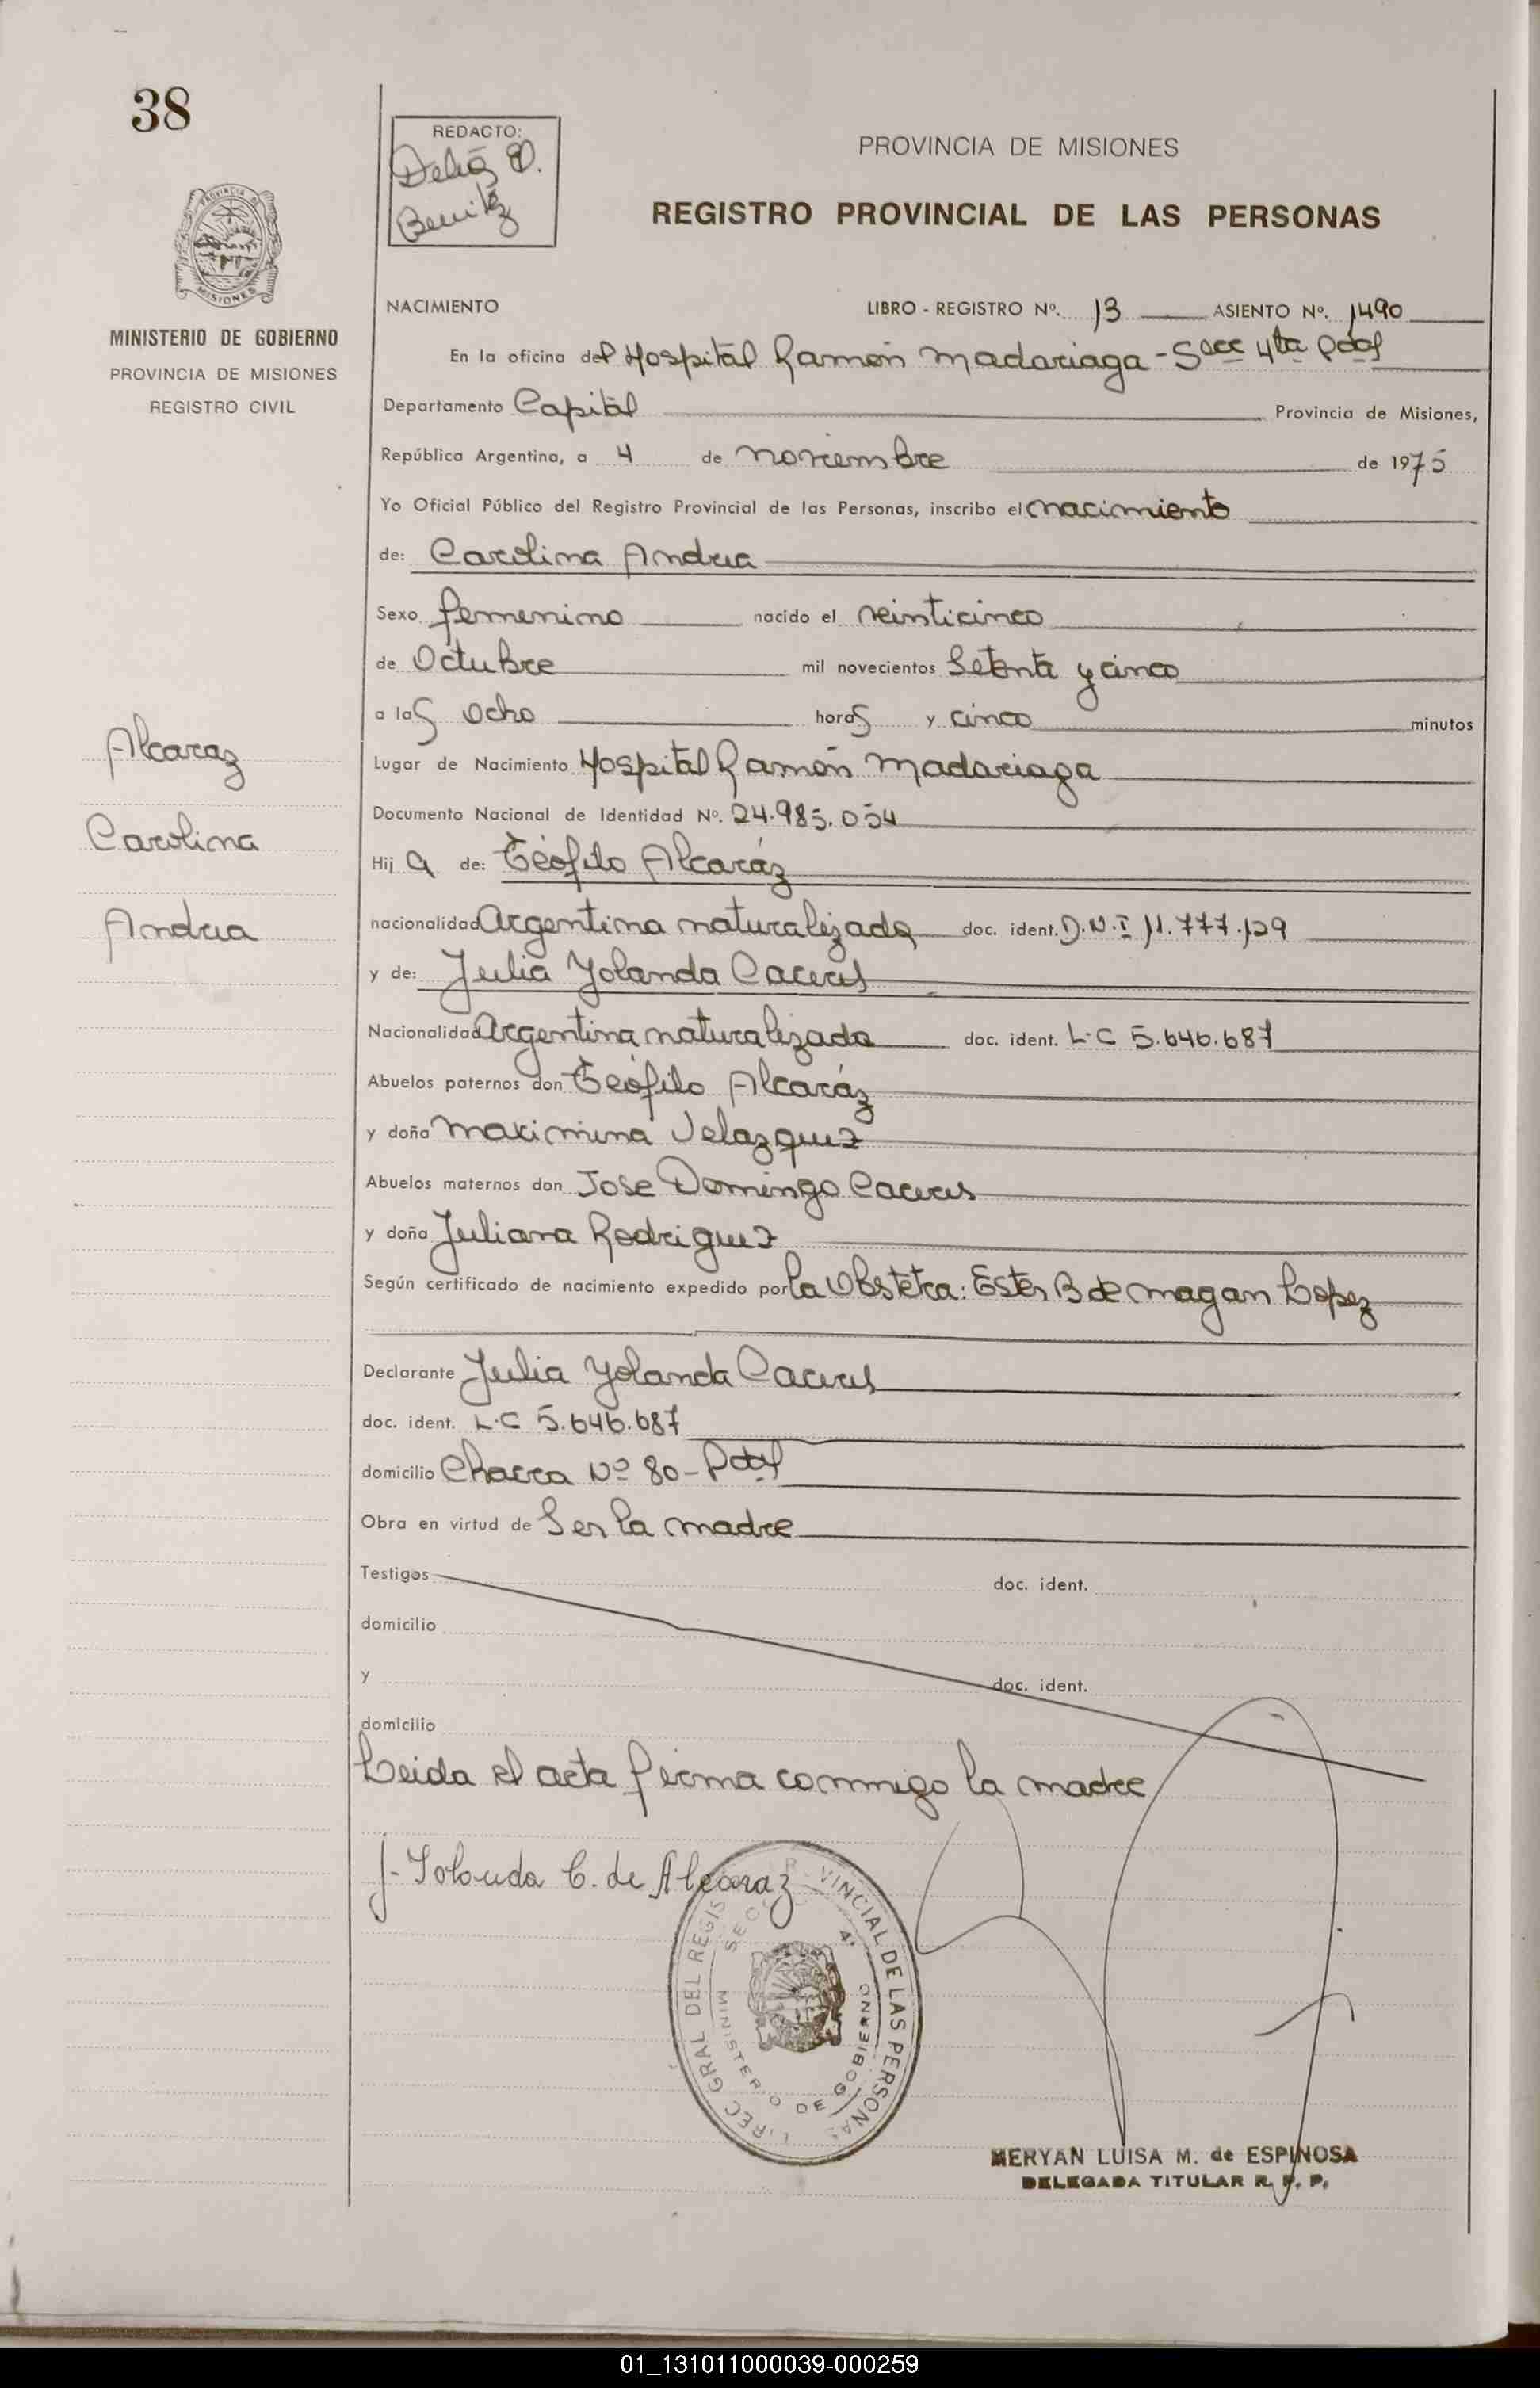 38
REDACTO:
Delia
Benitez
PROVINCIA DE MISIONES
REGISTRO PROVINCIAL DE LAS PERSONAS
PROVINCIA DE
MISIONES
MINISTERIO DE GOBIERNO
PROVINCIA DE MISIONES
REGISTRO CIVIL
NACIMIENTO LIBRO - REGISTRO Nº. 13 ASIENTO Nº. 1490
En la oficina del Hospital Ramón Madariaga - Secc 4ta Pdas
Departamento Capital Provincia de Misiones,
República Argentina, a 4 de noviembre de 1975
Yo Oficial Público del Registro Provincial de las Personas, inscribo el nacimiento
de: Carolina Andrea
Sexo femenino nacido el veinticinco
de Octubre mil novecientos Setenta y cinco
a las ocho horas y cinco minutos
Lugar de Nacimiento Hospital Ramón Madariaga
Documento Nacional de Identidad Nº. 24.985.054
Hija de: Teófilo Alcaráz
nacionalidad Argentina naturalizada doc. ident. D.N.I 11.777.129
y de: Julia Yolanda Caceres
Nacionalidad Argentina naturalizada doc. ident. L.C 5.646.687
Abuelos paternos don Teófilo Alcaráz
y doña Maximina Velazquez
Abuelos maternos don Jose Domingo Caceres
y doña Juliana Rodriguez
Según certificado de nacimiento expedido por la Obstetra: Ester B de Magan Lopez
Declarante Julia Yolanda Caceres
doc. ident. L.C 5.646.687
domicilio Chacra Nº 80 - Pdas
Obra en virtud de Ser la madre
Testigos doc. ident.
domicilio
y doc. ident.
domicilio
Leida el acta firma conmigo la madre
Alcaraz
Carolina
Andrea
J. Yolanda C. de Alcaraz
DIREC GRAL DEL REGIS VINCIAL DE LAS PERSONAS
SECC 4ª
MINISTERIO DE GOBIERNO
MERYAN LUISA M. de ESPINOSA
DELEGADA TITULAR R. P. P.
01_131011000039-000259